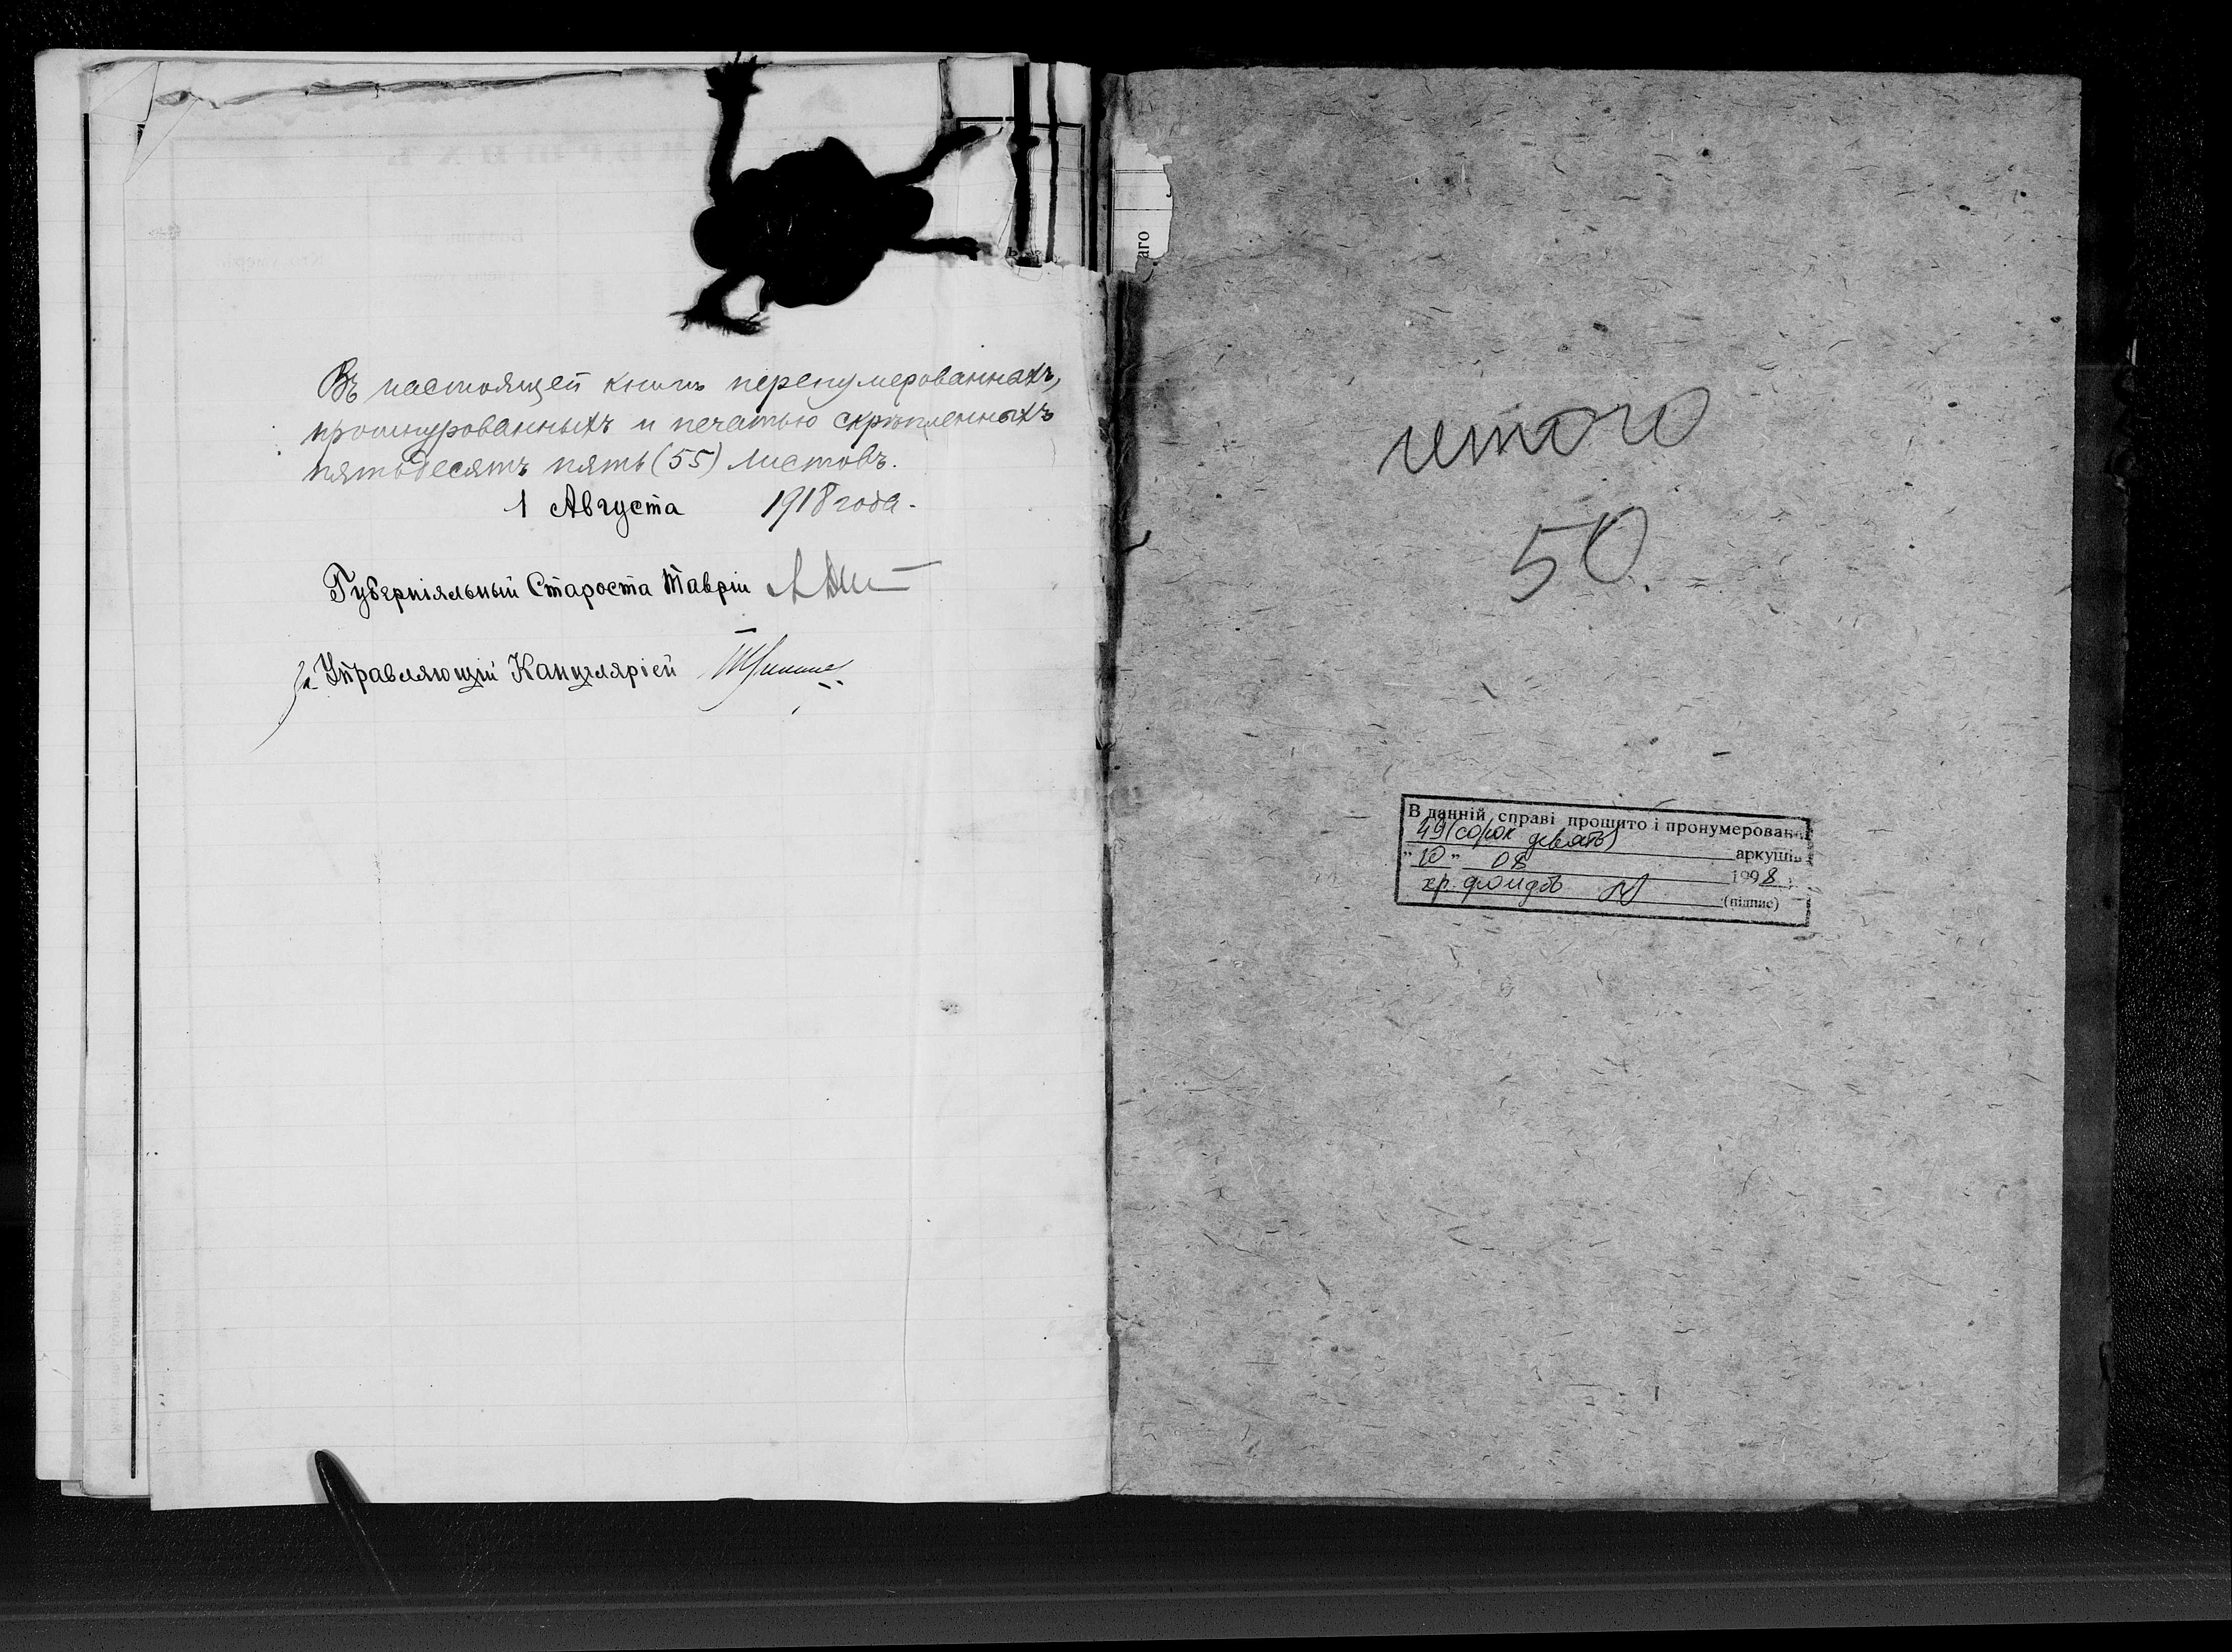 Въ настоящей книгѣ перенумерованныхъ,
прошнурованныхъ и печатью скрѣпленныхъ
пятьдесятъ пять (55) листовъ.
1 Августа 1918 года.
Губерніяльный Староста Тавріи
За Управляющій Канцеляріей
аго
итого
50.
В данній справі прошито і пронумеровано
49 (сорок девять) аркушів
"10" 08 1998 р.
хр. фондов
(підпис)